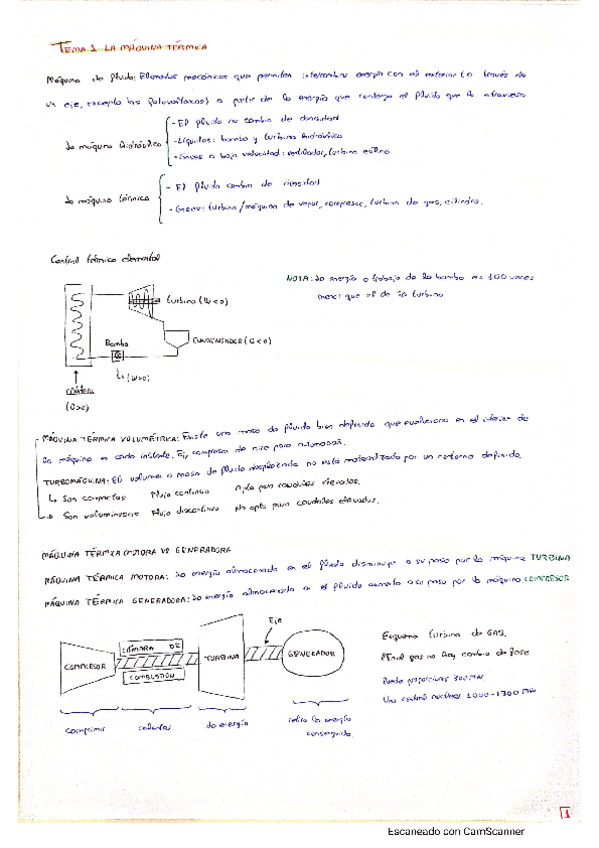 TEMA 1 LA MÁQUINA TÉRMICA
Máquina de fluido: Elementos mecánicos que permiten intercambiar energía con el exterior (a través de
un eje, excepto las fotovoltaicas) a partir de la energía que contenga el fluido que la atraviesa
La máquina hidráulica
- El fluido no cambia de densidad
- Líquidos: bomba y turbina hidráulica
- Gases a baja velocidad: ventilador, turbina eólica
La máquina térmica
- El fluido cambia de densidad
- Gases: turbina/máquina de vapor, compresor, turbina de gas, cilindro.
Central térmica elemental
NOTA: La energía o trabajo de la bomba es 100 veces
menor que el de la turbina
turbina (W<0)
Bomba
CONDENSADOR (Q<0)
(W>0)
CALDERA
(Q>0)
MÁQUINA TÉRMICA VOLUMÉTRICA: Existe una masa de fluido bien definida que evoluciona en el interior de
la máquina en cada instante. Ej, compresor de aire para automoción.
TURBOMÁQUINA: El volumen o masa de fluido desplazada no está materializado por un contorno definido.
Son compactas Flujo continuo Apto para caudales elevados.
Son voluminosas Flujo discontinuo No apto para caudales elevados.
MÁQUINA TÉRMICA MOTORA VS GENERADORA
MÁQUINA TÉRMICA MOTORA: La energía almacenada en el fluido disminuye a su paso por la máquina TURBINA
MÁQUINA TÉRMICA GENERADORA: La energía almacenada en el fluido aumenta a su paso por la máquina COMPRESOR
COMPRESOR
CÁMARA DE
COMBUSTIÓN
TURBINA
EJE
GENERADOR
Esquema turbina de GAS.
gas no hay cambio de fase
Puede proporcionar 300 MW
Una central nuclear 1000-1300 MW
comprimir
calentar
da energía
retira la energía
conseguida.
1
Escaneado con CamScanner